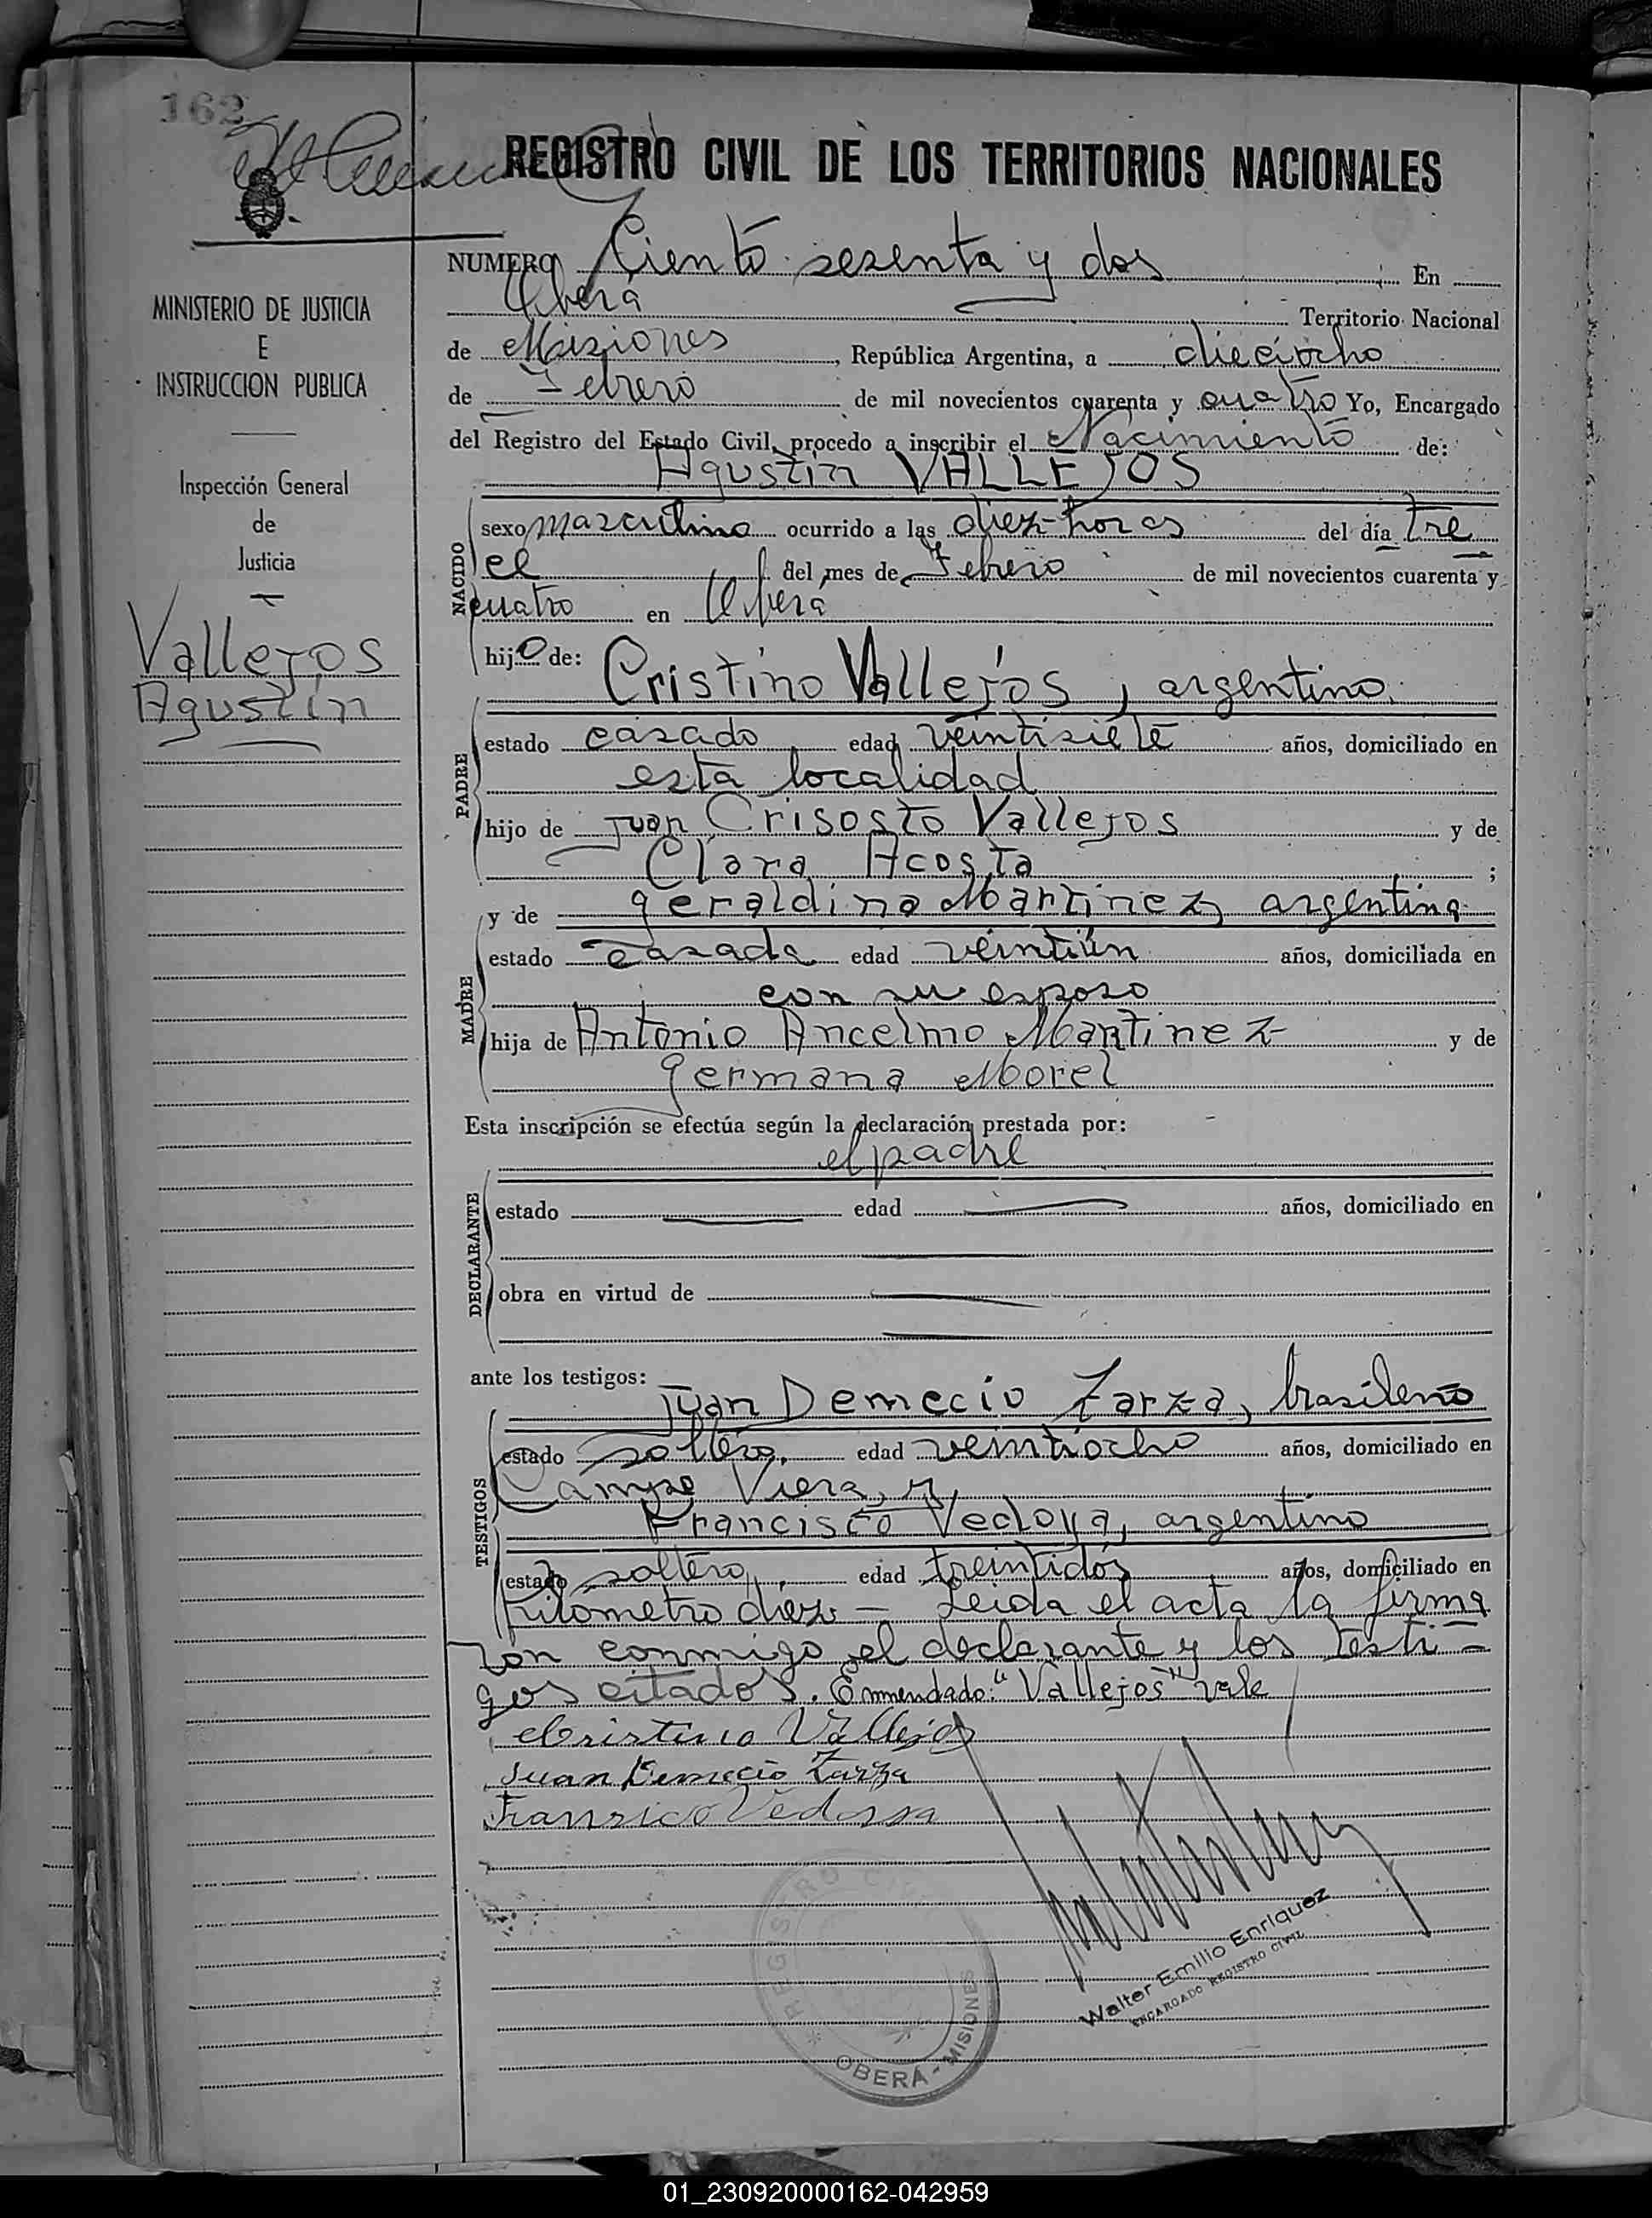 162
REGISTRO CIVIL DE LOS TERRITORIOS NACIONALES
MINISTERIO DE JUSTICIA
E
INSTRUCCION PUBLICA
Inspección General
de
Justicia
Vallejos
Agustín
NUMERO Ciento sesenta y dos En
Oberá Territorio Nacional
de Misiones, República Argentina, a dieciocho
de Febrero de mil novecientos cuarenta y cuatro Yo, Encargado
del Registro del Estado Civil, procedo a inscribir el Nacimiento de:
Agustín VALLEJOS
NACIDO
sexo masculino ocurrido a las diez horas del día tre
ce del mes de Febrero de mil novecientos cuarenta y
cuatro en Oberá
hijo de: Cristino Vallejos, argentino.
PADRE
estado casado edad veintisiete años, domiciliado en
esta localidad
hijo de Juan Crisosto Vallejos y de
Clara Acosta ;
y de geraldina Martinez, argentina
MADRE
estado casada edad veintiún años, domiciliada en
con su esposo
hija de Antonio Ancelmo Martinez y de
germana Morel
Esta inscripción se efectúa según la declaración prestada por:
el padre
DECLARANTE
estado edad años, domiciliado en
obra en virtud de
ante los testigos:
Juan Demecio Zarza, brasileño
TESTIGOS
estado soltero, edad veintiocho años, domiciliado en
Campo Viera, y
Francisco Vedoya, argentino
estado soltero, edad treintidós años, domiciliado en
Kilometro diez. — Leida el acta la firma
ron conmigo el declarante y los testi-
gos citados. Emmendado: "Vallejos" vale
Cristino Vallejos
Juan Demecio Zarza
REGISTRO CIVIL
OBERÁ - MISIONES
Walter Emilio Enriquez
ENCARGADO REGISTRO CIVIL
01_230920000162-042959